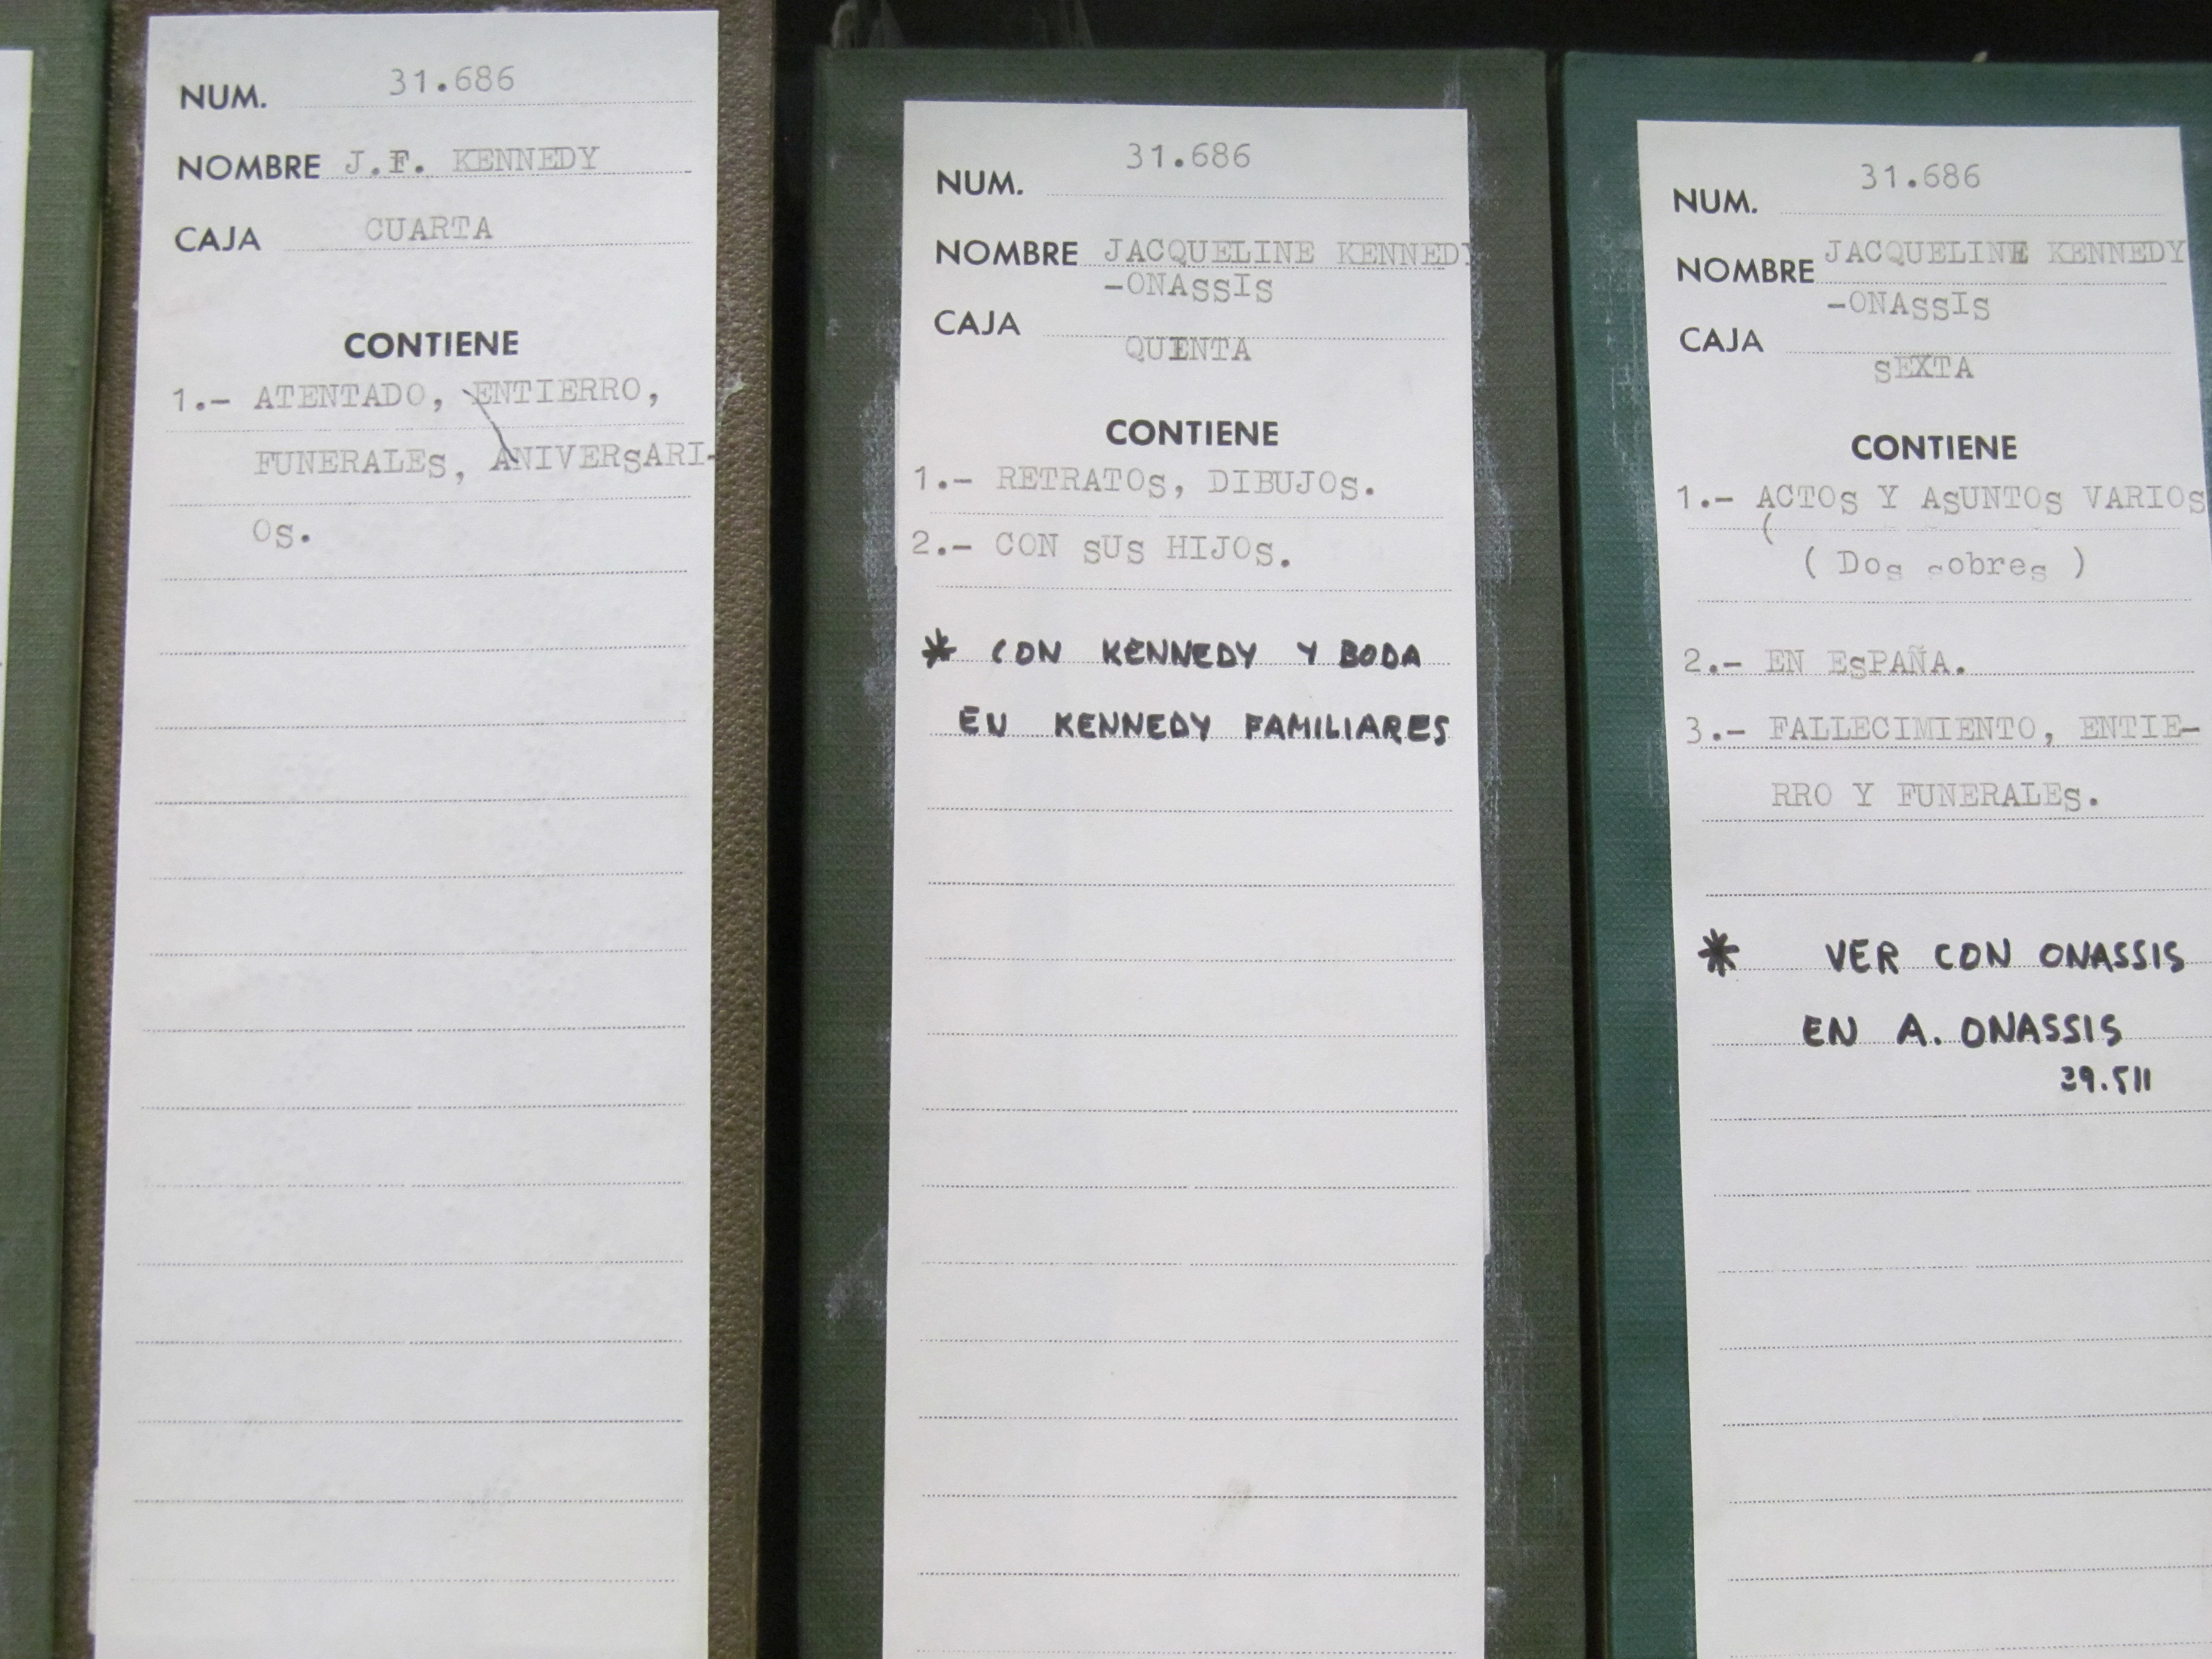 NUM. 31.686
NOMBRE J.F. KENNEDY
CAJA CUARTA
CONTIENE
1.- ATENTADO, ENTIERRO,
FUNERALES, ANIVERSARI-
OS.
NUM. 31.686
NOMBRE JACQUELINE KENNEDY
-ONASSIS
CAJA
QUINTA
CONTIENE
1.- RETRATOS, DIBUJOS.
2.- CON SUS HIJOS.
* CON KENNEDY Y BODA
EN KENNEDY FAMILIARES
NUM. 31.686
NOMBRE JACQUELINE KENNEDY
-ONASSIS
CAJA
SEXTA
CONTIENE
1.- ACTOS Y ASUNTOS VARIOS
( Dos sobres )
2.- EN ESPAÑA.
3.- FALLECIMIENTO, ENTIE-
RRO Y FUNERALES.
* VER CON ONASSIS
EN A. ONASSIS
39.511